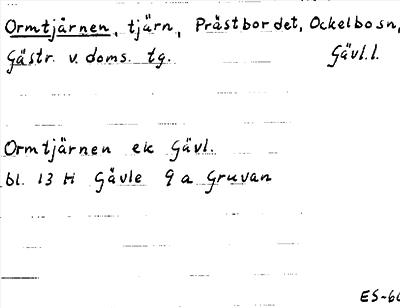 Ormtjärnen, tjärn, Prästbordet, Ockelbo sn,
Gästr. v. doms. tg. Gävl.l.
Ormtjärnen ek Gävl.
bl. 13 H Gävle 9 a Gruvan